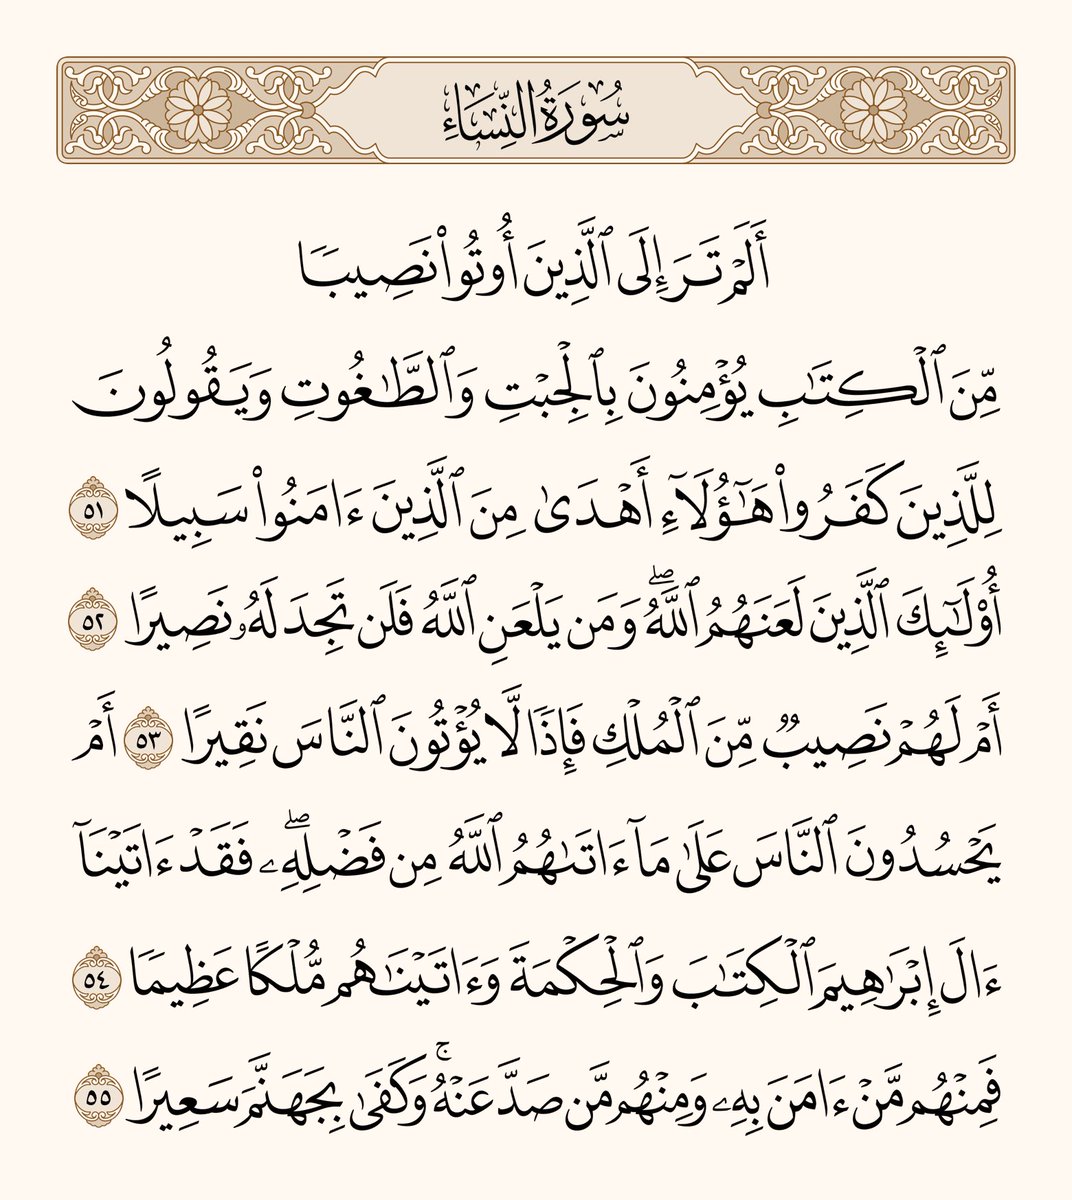 سُورَةُ النِّسَاءِ
أَلَمۡ تَرَ إِلَى ٱلَّذِينَ أُوتُواْ نَصِيبٗا
مِّنَ ٱلۡكِتَٰبِ يُؤۡمِنُونَ بِٱلۡجِبۡتِ وَٱلطَّٰغُوتِ وَيَقُولُونَ
لِلَّذِينَ كَفَرُواْ هَٰٓؤُلَآءِ أَهۡدَىٰ مِنَ ٱلَّذِينَ ءَامَنُواْ سَبِيلًا ٥١
أُوْلَٰٓئِكَ ٱلَّذِينَ لَعَنَهُمُ ٱللَّهُۖ وَمَن يَلۡعَنِ ٱللَّهُ فَلَن تَجِدَ لَهُۥ نَصِيرًا ٥٢
أَمۡ لَهُمۡ نَصِيبٞ مِّنَ ٱلۡمُلۡكِ فَإِذٗا لَّا يُؤۡتُونَ ٱلنَّاسَ نَقِيرًا ٥٣ أَمۡ
يَحۡسُدُونَ ٱلنَّاسَ عَلَىٰ مَآ ءَاتَىٰهُمُ ٱللَّهُ مِن فَضۡلِهِۦۖ فَقَدۡ ءَاتَيۡنَآ
ءَالَ إِبۡرَٰهِيمَ ٱلۡكِتَٰبَ وَٱلۡحِكۡمَةَ وَءَاتَيۡنَٰهُم مُّلۡكًا عَظِيمٗا ٥٤
فَمِنۡهُم مَّنۡ ءَامَنَ بِهِۦ وَمِنۡهُم مَّن صَدَّ عَنۡهُۚ وَكَفَىٰ بِجَهَنَّمَ سَعِيرًا ٥٥